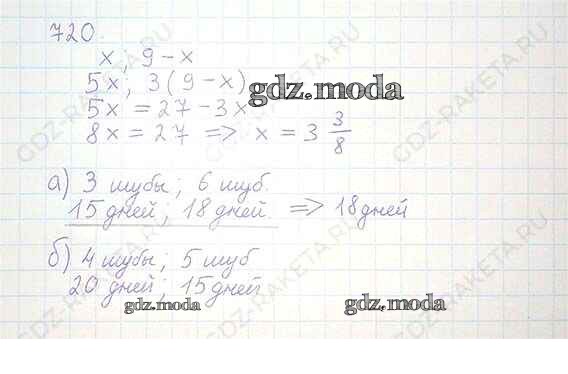 720.
x ; 9 - x
5x ; 3(9-x)
gdz.moda
5x = 27 - 3x
8x = 27 => x = 3 3/8
а) 3 шубы ; 6 шуб.
15 дней ; 18 дней. => 18 дней
б) 4 шубы ; 5 шуб
20 дней ; 15 дней
gdz.moda
gdz.moda
GDZ-RAKETA.RU
GDZ-RAKETA.RU
GDZ-RAKETA.RU
GDZ-RAKETA.RU
GDZ-RAKETA.RU
GDZ-RAKETA.RU